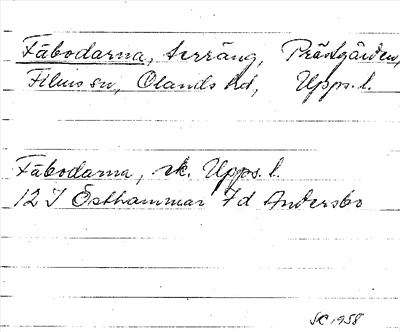 Fäbodarna, terräng, Prästgården,
Films sn, Olands hd, Upps. l.
Fäbodarna, ek. Upps. l.
12 I Östhammar 7d Andersbo
SC 1958